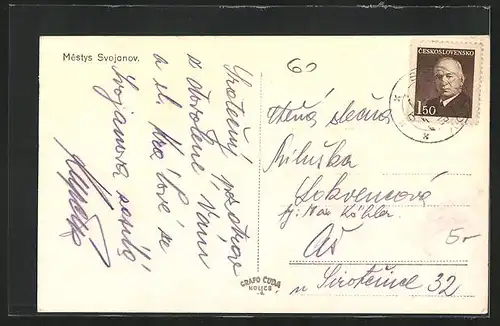 Městys Svojanov.
60
ČESKOSLOVENSKO
1.50
Srdečný pozdrav
z dovolené Vám
a sl. Králové ze
Svojanova zasílá
Ctěná slečna
Liluška
Lokvencová
fy: Max Köhler
Aš
u Sirotčince 32
5.-
GRAFO ČUDA
HOLICE